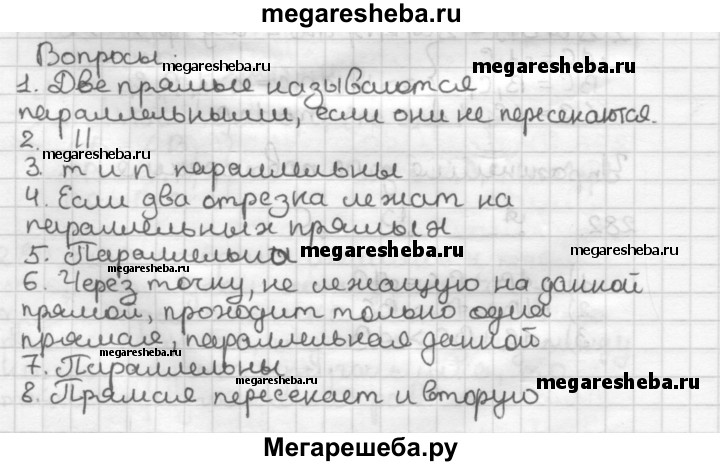 megaresheba.ru
Вопросы:
1. Две прямые называются
параллельными, если они не пересекаются.
2. ||
3. m и n параллельны
4. Если два отрезка лежат на
параллельных прямых
5. Параллельны
6. Через точку, не лежащую на данной
прямой, проходит только одна
прямая, параллельная данной
7. Параллельны
8. Прямая пересекает и вторую
megaresheba.ru
megaresheba.ru
megaresheba.ru
megaresheba.ru
megaresheba.ru
megaresheba.ru
megaresheba.ru
megaresheba.ru
megaresheba.ru
Мегарешеба.ру